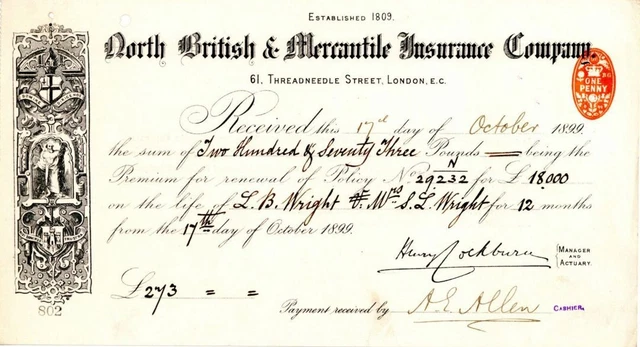 ESTABLISHED 1809.
North British & Mercantile Insurance Company.
61, THREADNEEDLE STREET, LONDON, E.C.
ONE PENNY
Received this 17th day of October 1899
the sum of Two Hundred & Seventy Three Pounds being the
Premium for renewal of Policy No. 29232 N for £18,000
on the life of L. B. Wright & Mrs S. L. Wright for 12 months
from the 17th day of October 1899.
Henry Cockburn MANAGER AND ACTUARY.
£273 = =
Payment received by A. E. Allen CASHIER.
802